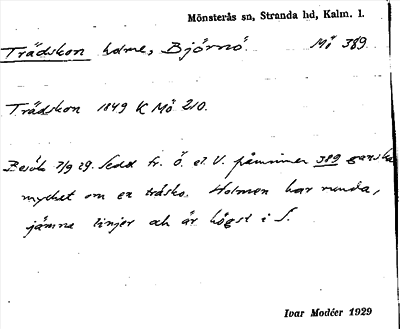 Mönsterås sn, Stranda hd, Kalm. l.
Trädskon holme, Björnö. Mö 389.
Trädskon 1849 K Mö 210.
Besök 7/9 29. Sedd fr. Ö. el. V. påminner 389 ganska
mycket om en träsko. Holmen har runda,
jämna linjer och är högst i S.
Ivar Modéer 1929